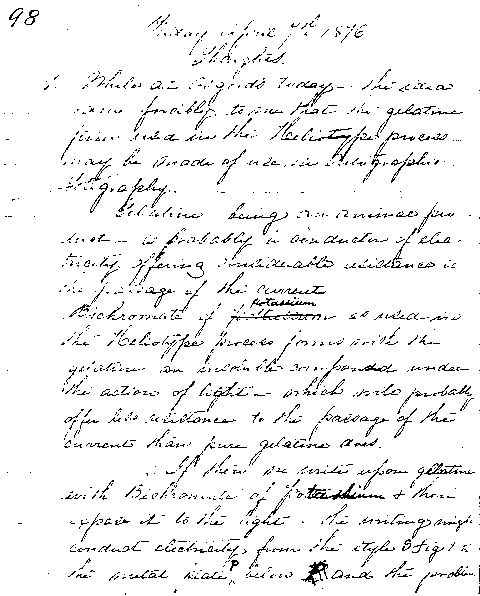 98
Friday April 7th 1876
Thoughts.
1. While at Osgood's today - the idea
came forcibly to me that the gelatine
film used in the Heliotype process
may be made of use in autographic
telegraphy.
Gelatine being an animal pro-
duct - is probably a conductor of elec-
tricity offering considerable resistance to
the passage of the current
potassium
Bichromate of as used in
the Heliotype process forms with the
gelatine an insoluble compound under
the action of light - which will probably
offer less resistance to the passage of the
current than pure gelatine does.
∴ If then we write upon gelatine
with Bichromate of potassium & then
expose it to the light - the writing might
conduct electricity from the style S fig 1 to
the metal plate P below and the problem